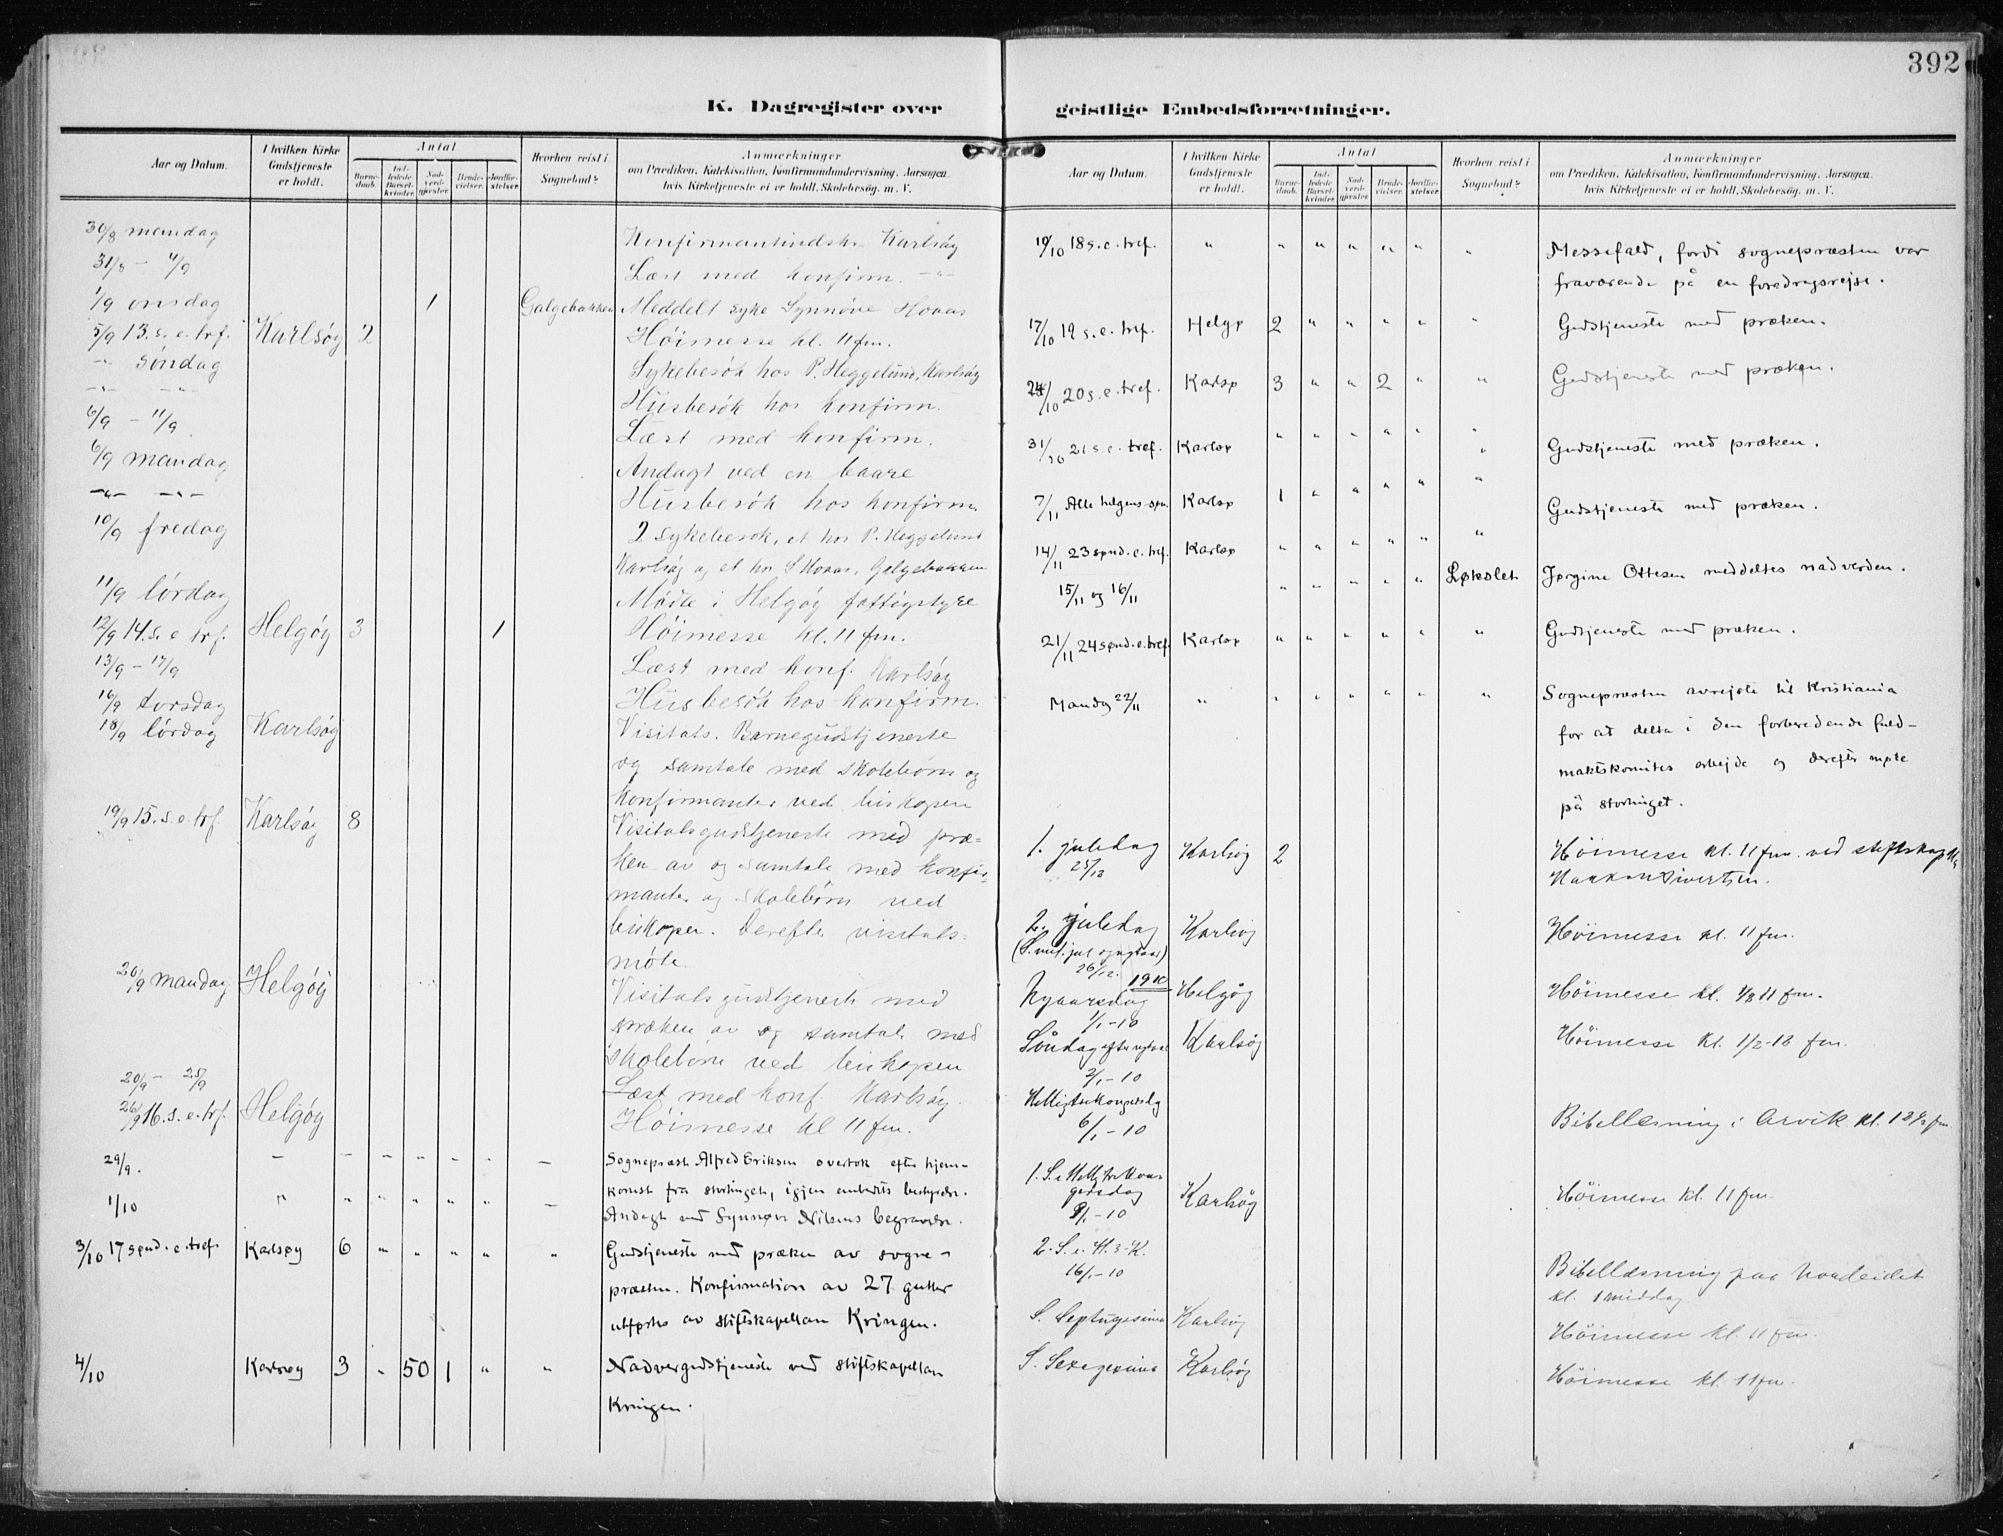 392
K. Dagregister over
geistlige Embedsforretninger.
Aar og Datum.
I hvilken Kirke Gudstjeneste er holdt.
Antal
Barnedaab.
Indledede Barselkvinder.
Nadverdgjester.
Brudevielser.
Jordfæstelser.
Hvorhen reist i Sognebud?
Anmærkninger
om Prædiken, Katekisation, Konfirmandundervisning, Aarsagen,
hvis Kirketjeneste ei er holdt, Skolebesøg, m. V.
30/8 mandag Karlsöy
31/8 - 4/9 Læst med konfirm. -"-
1/9 onsdag 1 Galgebakken Meddelt syke Synnöve Hovas
5/9 13. s. e. trf. Karlsöy 2 Höimesse kl. 11 fm.
-"- söndag Sykebesök hos P. Heggelund, Karlsöy
-"- -"- Husbesök hos konfirm.
6/9 - 11/9 Læst med konfirm.
6/9 mandag Andagt ved en baare
-"- -"- Husbesök hos konfirm.
10/9 fredag 2 sykebesök, et hos P. Heggelund
Karlsöy og et hos S. Hovas, Galgebakken
11/9 lördag Möte i Helgöy fattigstyre
12/9 14. s. e. trf. Helgöy 3 1 Höimesse kl. 11 fm.
13/9 - 17/9 Læst med konf. Karlsöy
16/9 torsdag Husbesök hos konfirm.
18/9 lördag Karlsöy Visitats. Barnegudstjeneste
og samtale med skolebörn og
konfirmanter ved biskopen
19/9 15. s. e. trf. Karlsöy 8 Visitatsgudstjeneste med præ-
ken av og samtale med konfir-
manter og skolebörn ved
biskopen. Derefter visitats-
möte.
20/9 mandag Helgöy Visitatsgudstjeneste med
præken av og samtale med
skolebörn ved biskopen
20/9 - 25/9 Læst med konf. Karlsöy.
26/9 16. s. e. trf. Helgöy Höimesse kl 11 fm.
29/9. - - - - - - - Sogneprest Alfred Eriksen overtok efter hjem-
komst fra stortinget, igjen embedets bestyrelse.
1/10 " " " " " " - Andagt ved Synnøve Nilsens begravelse.
3/10 17 sønd. e. tref. Karlsøy 6 " " " " " Gudstjeneste med præken av sogne-
præsten. Konfirmation av 27 gutter
utførtes av stiftskapellan Kringen.
4/10 Karlsøy 3 " 50 1 " " Nadvergudstjeneste ved stiftskapellan
Kringen.
Aar og Datum.
I hvilken Kirke Gudstjeneste er holdt.
Antal
Barnedaab.
Indledede Barselkvinder.
Nadverdgjester.
Brudevielser.
Jordfæstelser.
Hvorhen reist i Sognebud?
Anmærkninger
om Prædiken, Katekisation, Konfirmandundervisning, Aarsagen,
hvis Kirketjeneste ei er holdt, Skolebesøg, m. V.
10/10 18 s. e. tref. " " " " " " " Messefald, fordi sognepræsten var
fraværende på en foredragsrejse.
17/10 19 s. e. tref. Helgø 2 " " " " " Gudstjeneste med præken.
24/10 20 s. e. tref. Karlsø 3 " " 2 " " Gudstjeneste med præken.
31/10 21 s. e. tref. Karlsø " " " " " " Gudstjeneste med præken.
7/11 Alle helgens søn. Karlsø 1 " " " " " Gudstjeneste med præken.
14/11 23 sønd. e. tref. Karlsø " " " " " "
15/11 og 16/11 " " " " " Løkslet Jørgine Ottesen meddeltes nadverden.
21/11 24 sønd. e. tref. Karlsø " " " " " " Gudstjeneste med præken.
Mandag 22/11 " " " " " " " Sognepræsten avrejste til Kristiania
for at delta i den forberedende fuld-
maktskomites arbejde og derefter møte
på stortinget.
1. juledag Karlsöy 2 Höimesse kl. 11 fm. ved stiftskap.
25/12 Haakon Sivertsen.
2. juledag Karlsöy Höimesse kl. 11 fm.
26/12.
1910
Nyaarsdag Helgöy Höimesse kl. 1/2 11 fm.
1/1-10
Söndag efter nytaar Karlsöy Höimesse kl. 1/2-12 fm.
2/1-10
Helligtrekongersdag Bibellæsning i Arvik kl. 12 1/2 fm
6/1-10
1. S. e. Hellig tre kon-
gersdag Karlsöy Höimesse kl. 11 fm.
9/1-10
2. S. e. H. 3. K. Bibellæsning paa
16/1-10 kl. 1 middag
S. Septuagesima Karlsöy Höimesse kl. 11 fm.
S. Sexagesima Karlsöy Höimesse kl. 11 fm.